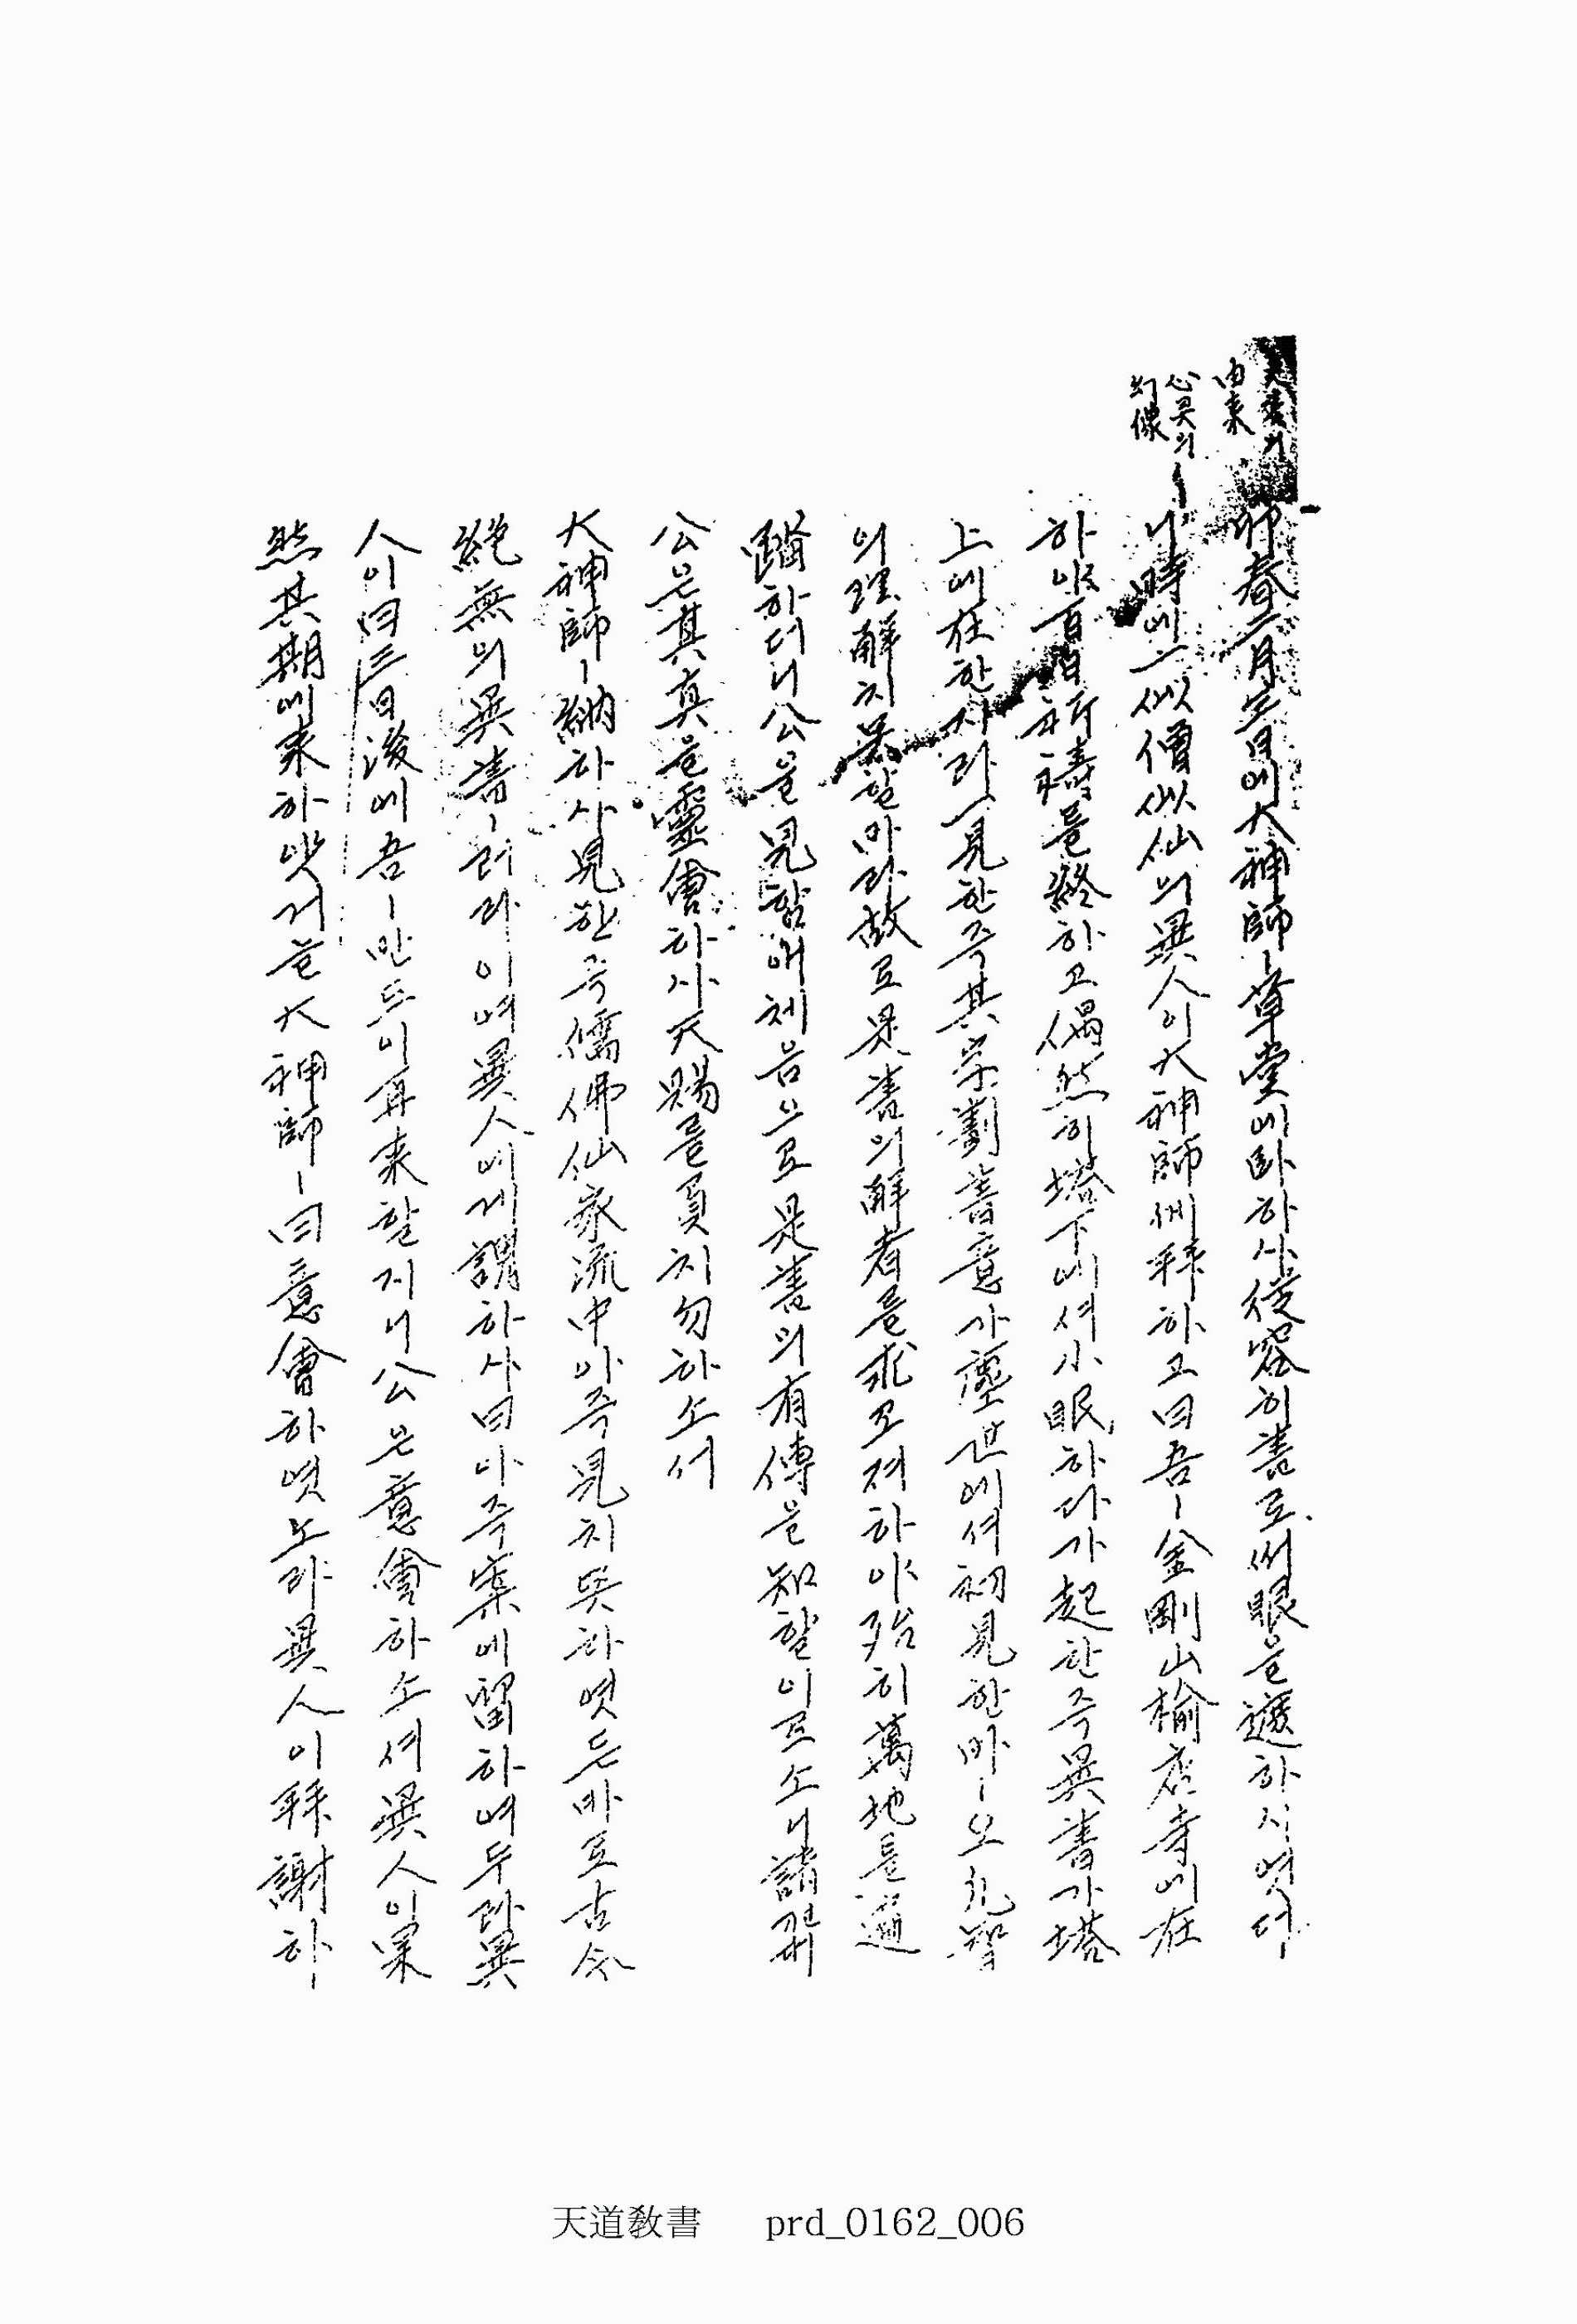 由來
心灵의
幻像
卯春三月 日에 大神師ㅣ 草堂에 臥하사 從容히 書로써 眼을 遮하시엿더
니 時에 一似僧似仙의 異人이 大神師께 拜하고 曰 吾ㅣ 金剛山 楡店寺에 在
하야 百日祈禱를 終하고 偶然히 塔下에셔 小眠하다가 起한즉 異書가 塔
上에 在한지라 一見한즉 其字劃書意가 塵世에셔 初見한 바ㅣ오 凡智
의 理解치 못할 바라 故로 是書의 解者를 求코져 하야 殆히 萬地를 遍
踏하더니 公을 見함애 체음으로 是書의 有傳을 知할이로소니 請컨
公은 其真을 靈會하사 天賜를 負치 勿하소서
大神師ㅣ 納하사 見한즉 儒佛仙家流中 아즉 見치 못하엿든 바로 古今
絶無의 異書ㅣ러라 이여 異人에게 謂하사 曰 아즉 案에 留하여 두라 異
人이 曰 三日後에 吾ㅣ 만드이 再來할지니 公은 意會하소셔 異人이 果
然 其期에 來하얏거늘 大神師ㅣ 曰 意會하엿노라 異人이 拜謝하
天道敎書 prd_0162_006